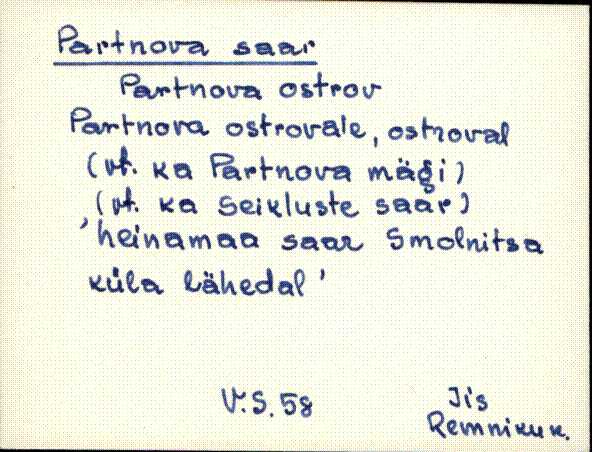 Partnova saar
Partnova ostrov
Partnova ostrovale, ostroval
(vt. ka Partnova mägi)
(vt. ka Seikluste saar)
'heinamaa saar Smolnitsa
küla lähedal'
V.S. 58
Jis
Remniku k.